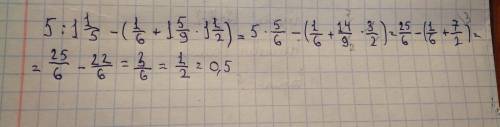 5 : 1 1/5 - (1/6 + 1 5/9 · 1 1/2) = 5 · 5/6 - (1/6 + 14/9 · 3/2) = 25/6 - (1/6 + 7/2 ³) =
= 25/6 - 22/6 = 3/6 = 1/2 = 0,5